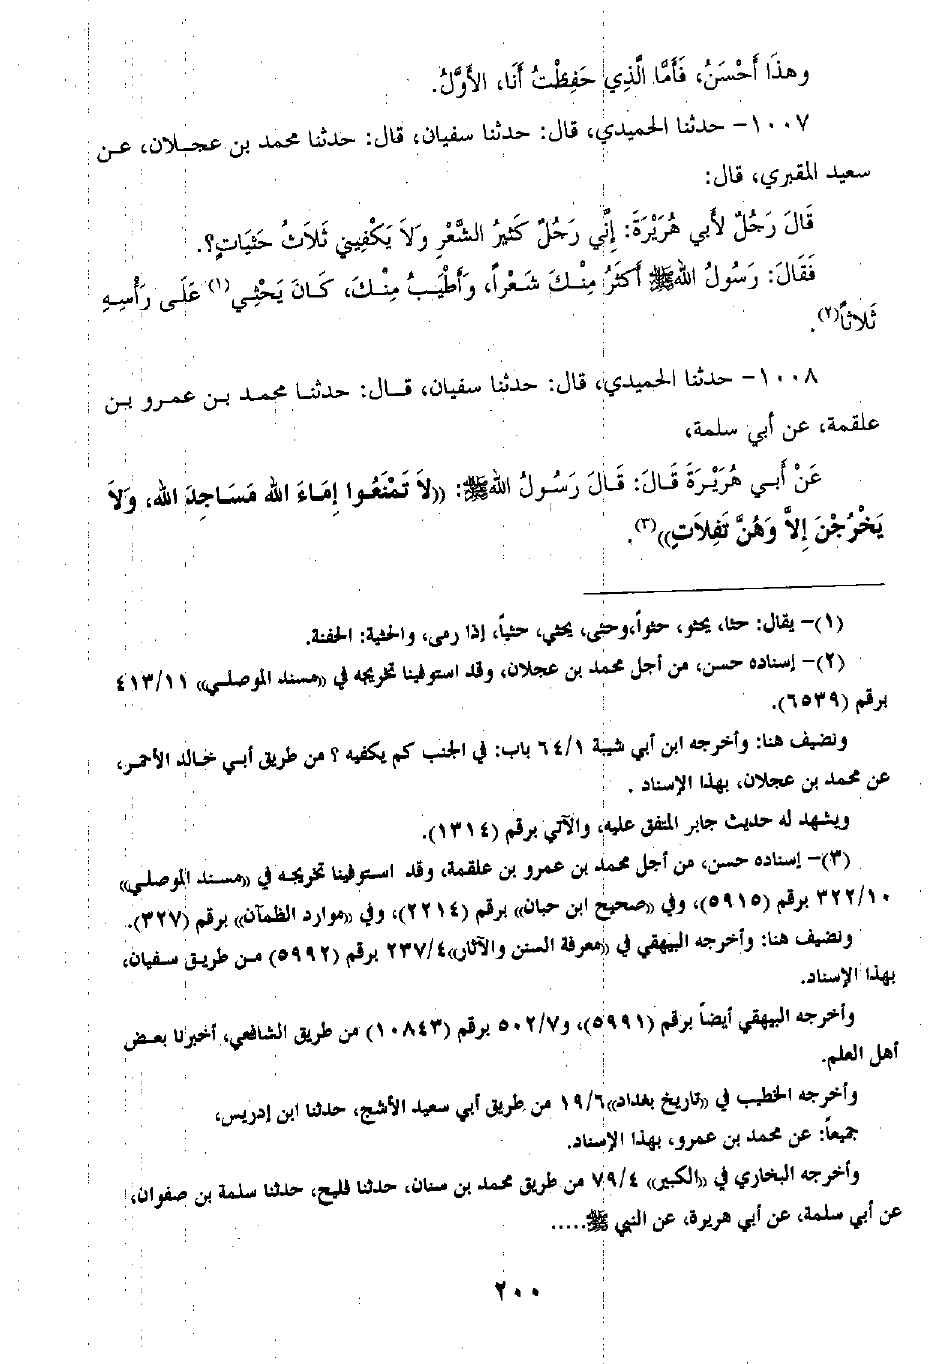 وهذَا أَحْسَنُ، فَأَمَّا الَّذِي حَفِظْتُ أَنَا، الأَوَّلُ.
١٠٠٧- حدثنا الحميدي، قال: حدثنا سفيان، قال: حدثنا محمد بن عجلان، عن
سعيد المقبري، قال:
قَالَ رَجُلٌ لأَبي هُرَيْرَةَ: إِنَّي رَجُلٌ كَثِيرُ الشَّعْرِ وَلاَ يَكْفِينِي ثَلاَثُ حَثَيَاتٍ؟.
فَقَالَ: رَسُولُ اللهِ ﷺ أَكثَرُ مِنْكَ شَعْراً، وَأَطْيَبُ مِنْكَ، كَانَ يَحْثِي(١) عَلَى رَأْسِهِ
ثَلاَثاً(٢).
١٠٠٨- حدثنا الحميدي، قال: حدثنا سفيان، قال: حدثنا محمد بن عمرو بن
علقمة، عن أبي سلمة،
عَنْ أَبي هُرَيْرَةَ قَالَ: قَالَ رَسُولُ اللهِ ﷺ: ((لاَ تَمْنَعُوا إِمَاءَ الله مَسَاجِدَ الله، وَلاَ
يَخْرُجْنَ إِلاَّ وَهُنَّ تَفِلاَتٍ))(٣).
(١)- يقال: حثا، يحثو، حثواً،وحثى، يحثي، حثياً، إذا رمى، والحثية: الحفنة.
(٢)- إسناده حسن، من أجل محمد بن عجلان، وقد استوفينا تخريجه في ((مسند الموصلي)) ٤١٣/١١
برقم (٦٥٣٩).
ونضيف هنا: وأخرجه ابن أبي شيبة ٦٤/١ باب: في الجنب كم يكفيه ؟ من طريق أبي خالد الأحمر،
عن محمد بن عجلان، بهذا الإسناد .
ويشهد له حديث جابر المتفق عليه، والآتي برقم (١٣١٤).
(٣)- إسناده حسن، من أجل محمد بن عمرو بن علقمة، وقد استوفينا تخريجه في ((مسند الموصلي))
٣٢٢/١٠ برقم (٥٩١٥)، وفي ((صحيح ابن حبان)) برقم (٢٢١٤)، وفي ((موارد الظمآن)) برقم (٣٢٧).
ونضيف هنا: وأخرجه البيهقي في ((معرفة السنن والآثار))٢٣٧/٤ برقم (٥٩٩٢) من طريق سفيان،
بهذا الإسناد.
وأخرجه البيهقي أيضاً برقم (٥٩٩١)، و٥٠٢/٧ برقم (١٠٨٤٣) من طريق الشافعي، أخبرنا بعض
أهل العلم.
وأخرجه الخطيب في ((تاريخ بغداد))١٩/٦ من طريق أبي سعيد الأشج، حدثنا ابن إدريس،
جميعاً: عن محمد بن عمرو، بهذا الإسناد.
وأخرجه البخاري في ((الكبير)) ٧٩/٤ من طريق محمد بن سنان، حدثنا فليح، حدثنا سلمة بن صفوان،
عن أبي سلمة، عن أبي هريرة، عن النبي ﷺ.....
٢٠٠